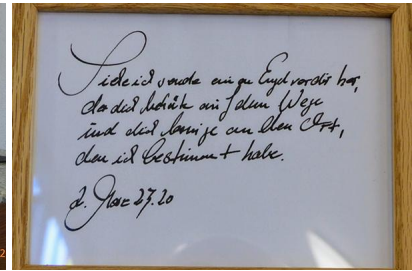 Siehe ich sende einen Engel vor dir her,
der dich behüte auf dem Wege
und dich bringe an den Ort,
den ich bestimmt habe.
2. Mose 23.20
2